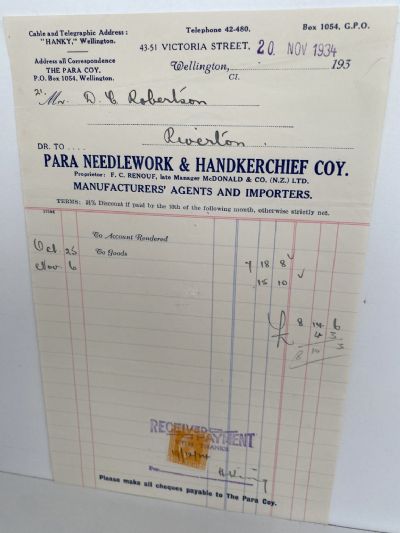 Cable and Telegraphic Address:
"HANKY," Wellington.
Telephone 42-480.
Box 1054, G.P.O.
Address all Correspondence
THE PARA COY.
P.O. Box 1054, Wellington.
43-51 VICTORIA STREET,
20 NOV 1934
Wellington, 193
Cl.
21. Mr. D C Robertson
Riverton.
DR. TO....
PARA NEEDLEWORK & HANDKERCHIEF COY.
Proprietor: F. C. RENOUF, late Manager McDONALD & CO. (N.Z.) LTD.
MANUFACTURERS' AGENTS AND IMPORTERS.
TERMS: Discount if paid by the 10th of the following month, otherwise strictly net.
To Account Rendered
Oct 25 To Goods 7 18 8
Nov 6 15 10
£ 8 14 6
4 3
8 10 3
RECEIVED PAYMENT
WITH THANKS
Per
Please make all cheques payable to The Para Coy.